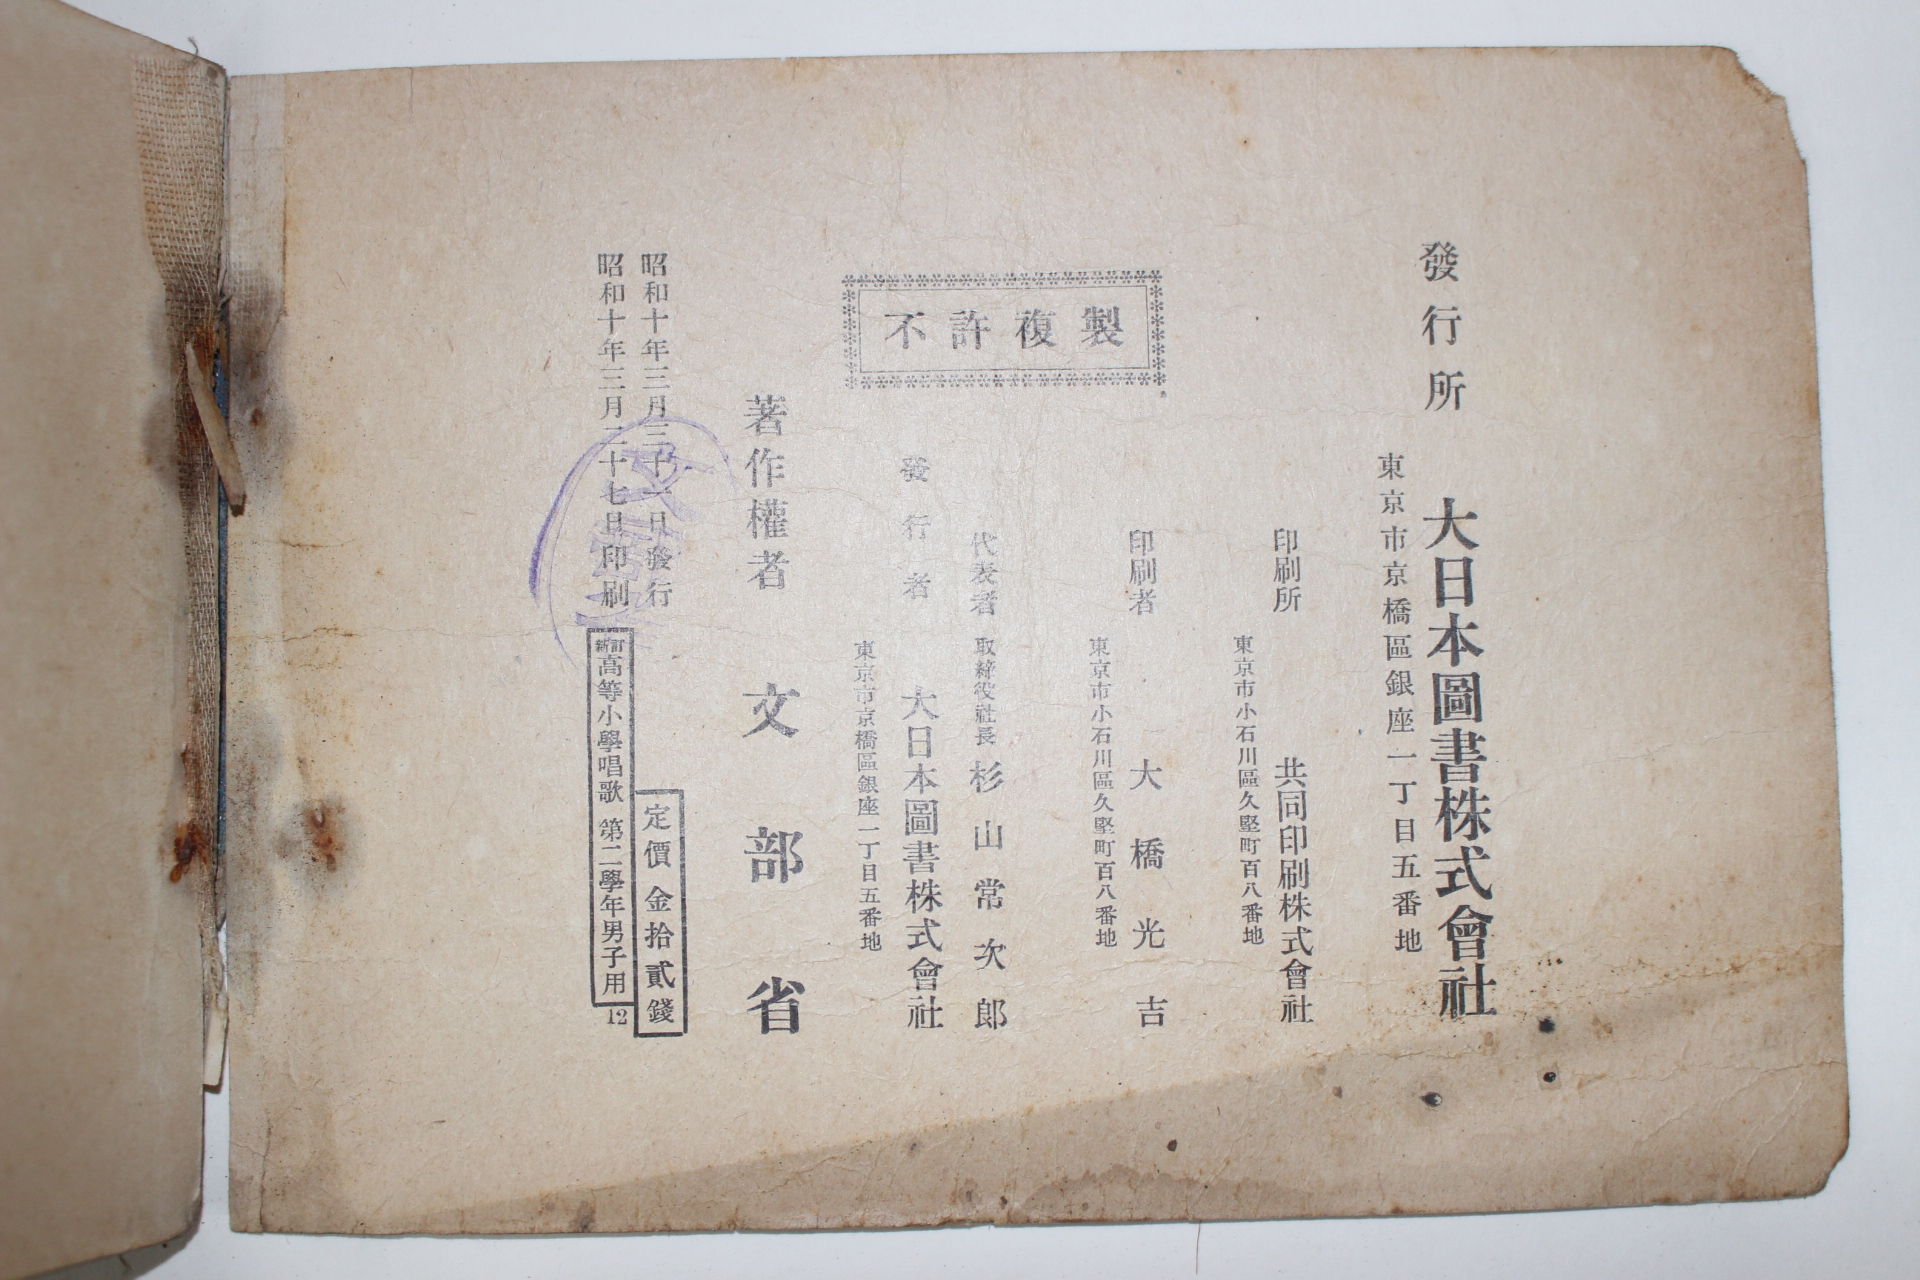 昭和十年三月二十七日印刷
昭和十年三月三十一日發行
新訂高等小學唱歌 第二學年男子用
12
定價金拾貳錢
著作權者 文部省
不許複製
東京市京橋區銀座一丁目五番地
發行者 大日本圖書株式會社
代表者 取締役社長 杉山常次郎
東京市小石川區久堅町百八番地
印刷者 大橋光吉
東京市小石川區久堅町百八番地
印刷所 共同印刷株式會社
東京市京橋區銀座一丁目五番地
發行所 大日本圖書株式會社